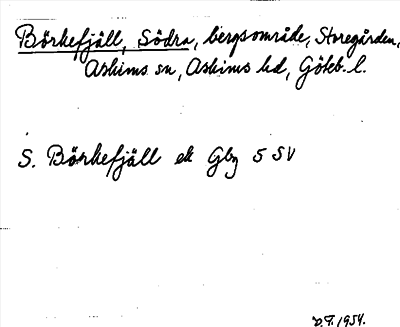 Börkefjäll, Södra, bergsområde, Storegården,
Askims sn, Askims hd, Göteb. l.
S. Börkefjäll ek Gbg 5 SV
D.F. 1954.